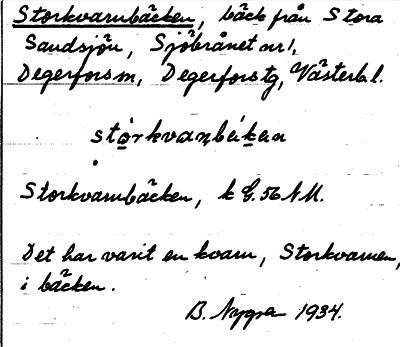 Storkvarnbäcken, bäck från Stora
Sandsjön, Sjöbrånet nr 1,
Degerfors sn, Degerfors tg, Västerb.l.
stórkvaṇbäkɘn
Storkvarnbäcken, k G.56 NM.
Det har varit en kvarn, Storkvarnen,
i bäcken.
B. Nygren 1934.